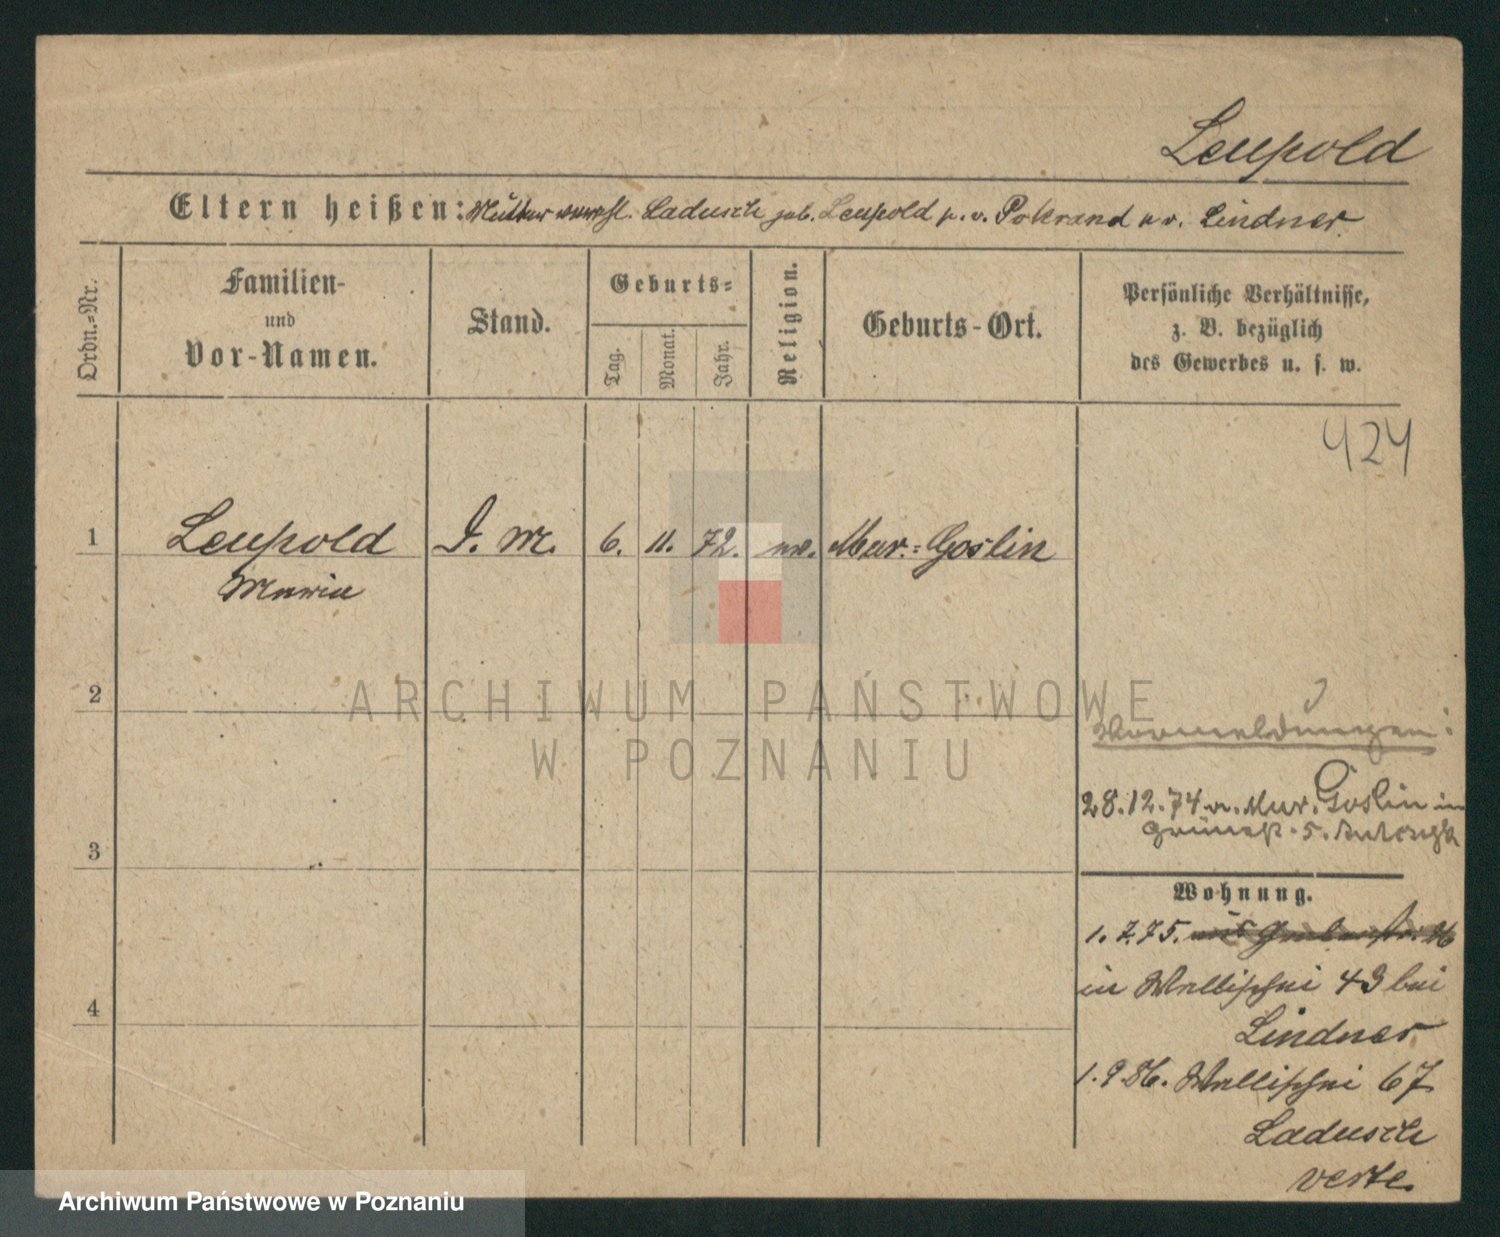 Leupold
Eltern heißen: Mutter verehl. Ladusch geb. Leupold fr. v. Pokrand u v. Lindner
Ordn.-Nr.
Familien-
und
Vor-Namen.
Stand.
Geburts-
Tag.
Monat.
Jahr.
Religion.
Geburts-Ort.
Persönliche Verhältnisse,
z. B. bezüglich
des Gewerbes u. s. w.
424
1 Leupold D. M. 6. 11. 72. ev. Mur.-Goslin
Maria
2
Vormeldungen:
28.12.74 v. Mur. Goslin in
3
Wohnung.
1.7.75.
in Wallischei 43 bei
4
Lindner
1.9.86. Wallischei 67
Ladusch
verte.
ARCHIWUM PAŃSTWOWE
W POZNANIU
Archiwum Państwowe w Poznaniu